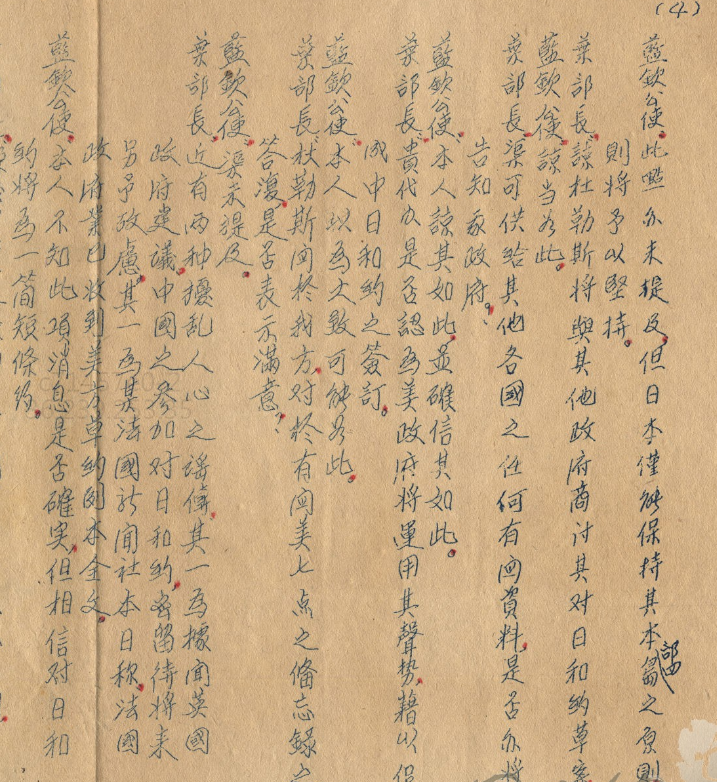 (4)
藍欽公使、此點亦未提及、但日本僅能保持其本部四島之原則
則將予以堅持。
葉部長、諒杜勒斯將與其他政府商討其对日和約草案
藍欽公使、諒当如此。
葉部長、渠可供給其他各國之任何有関資料、是否亦將
告知我政府？
藍欽公使、本人諒其如此、並確信其如此。
葉部長、貴代办是否認為美政府將運用其聲势、藉以促
成中日和約之簽訂。
藍欽公使、本人以為大致可能如此。
葉部長、杜勒斯関於我方、对於有関美七点之備忘錄之
答復、是否表示滿意？
藍欽公使、渠未提及。
葉部長、近有兩种擾乱人心之謠傳、其一為據聞英國
政府建議、中國之参加对日和約、容留待將来
另予攷慮、其一為某法國新聞社本日称、法國
政府業已收到美方草約副本全文。
藍欽公使、本人不知此項消息是否確实、但相信对日和
約將為一簡短條約。